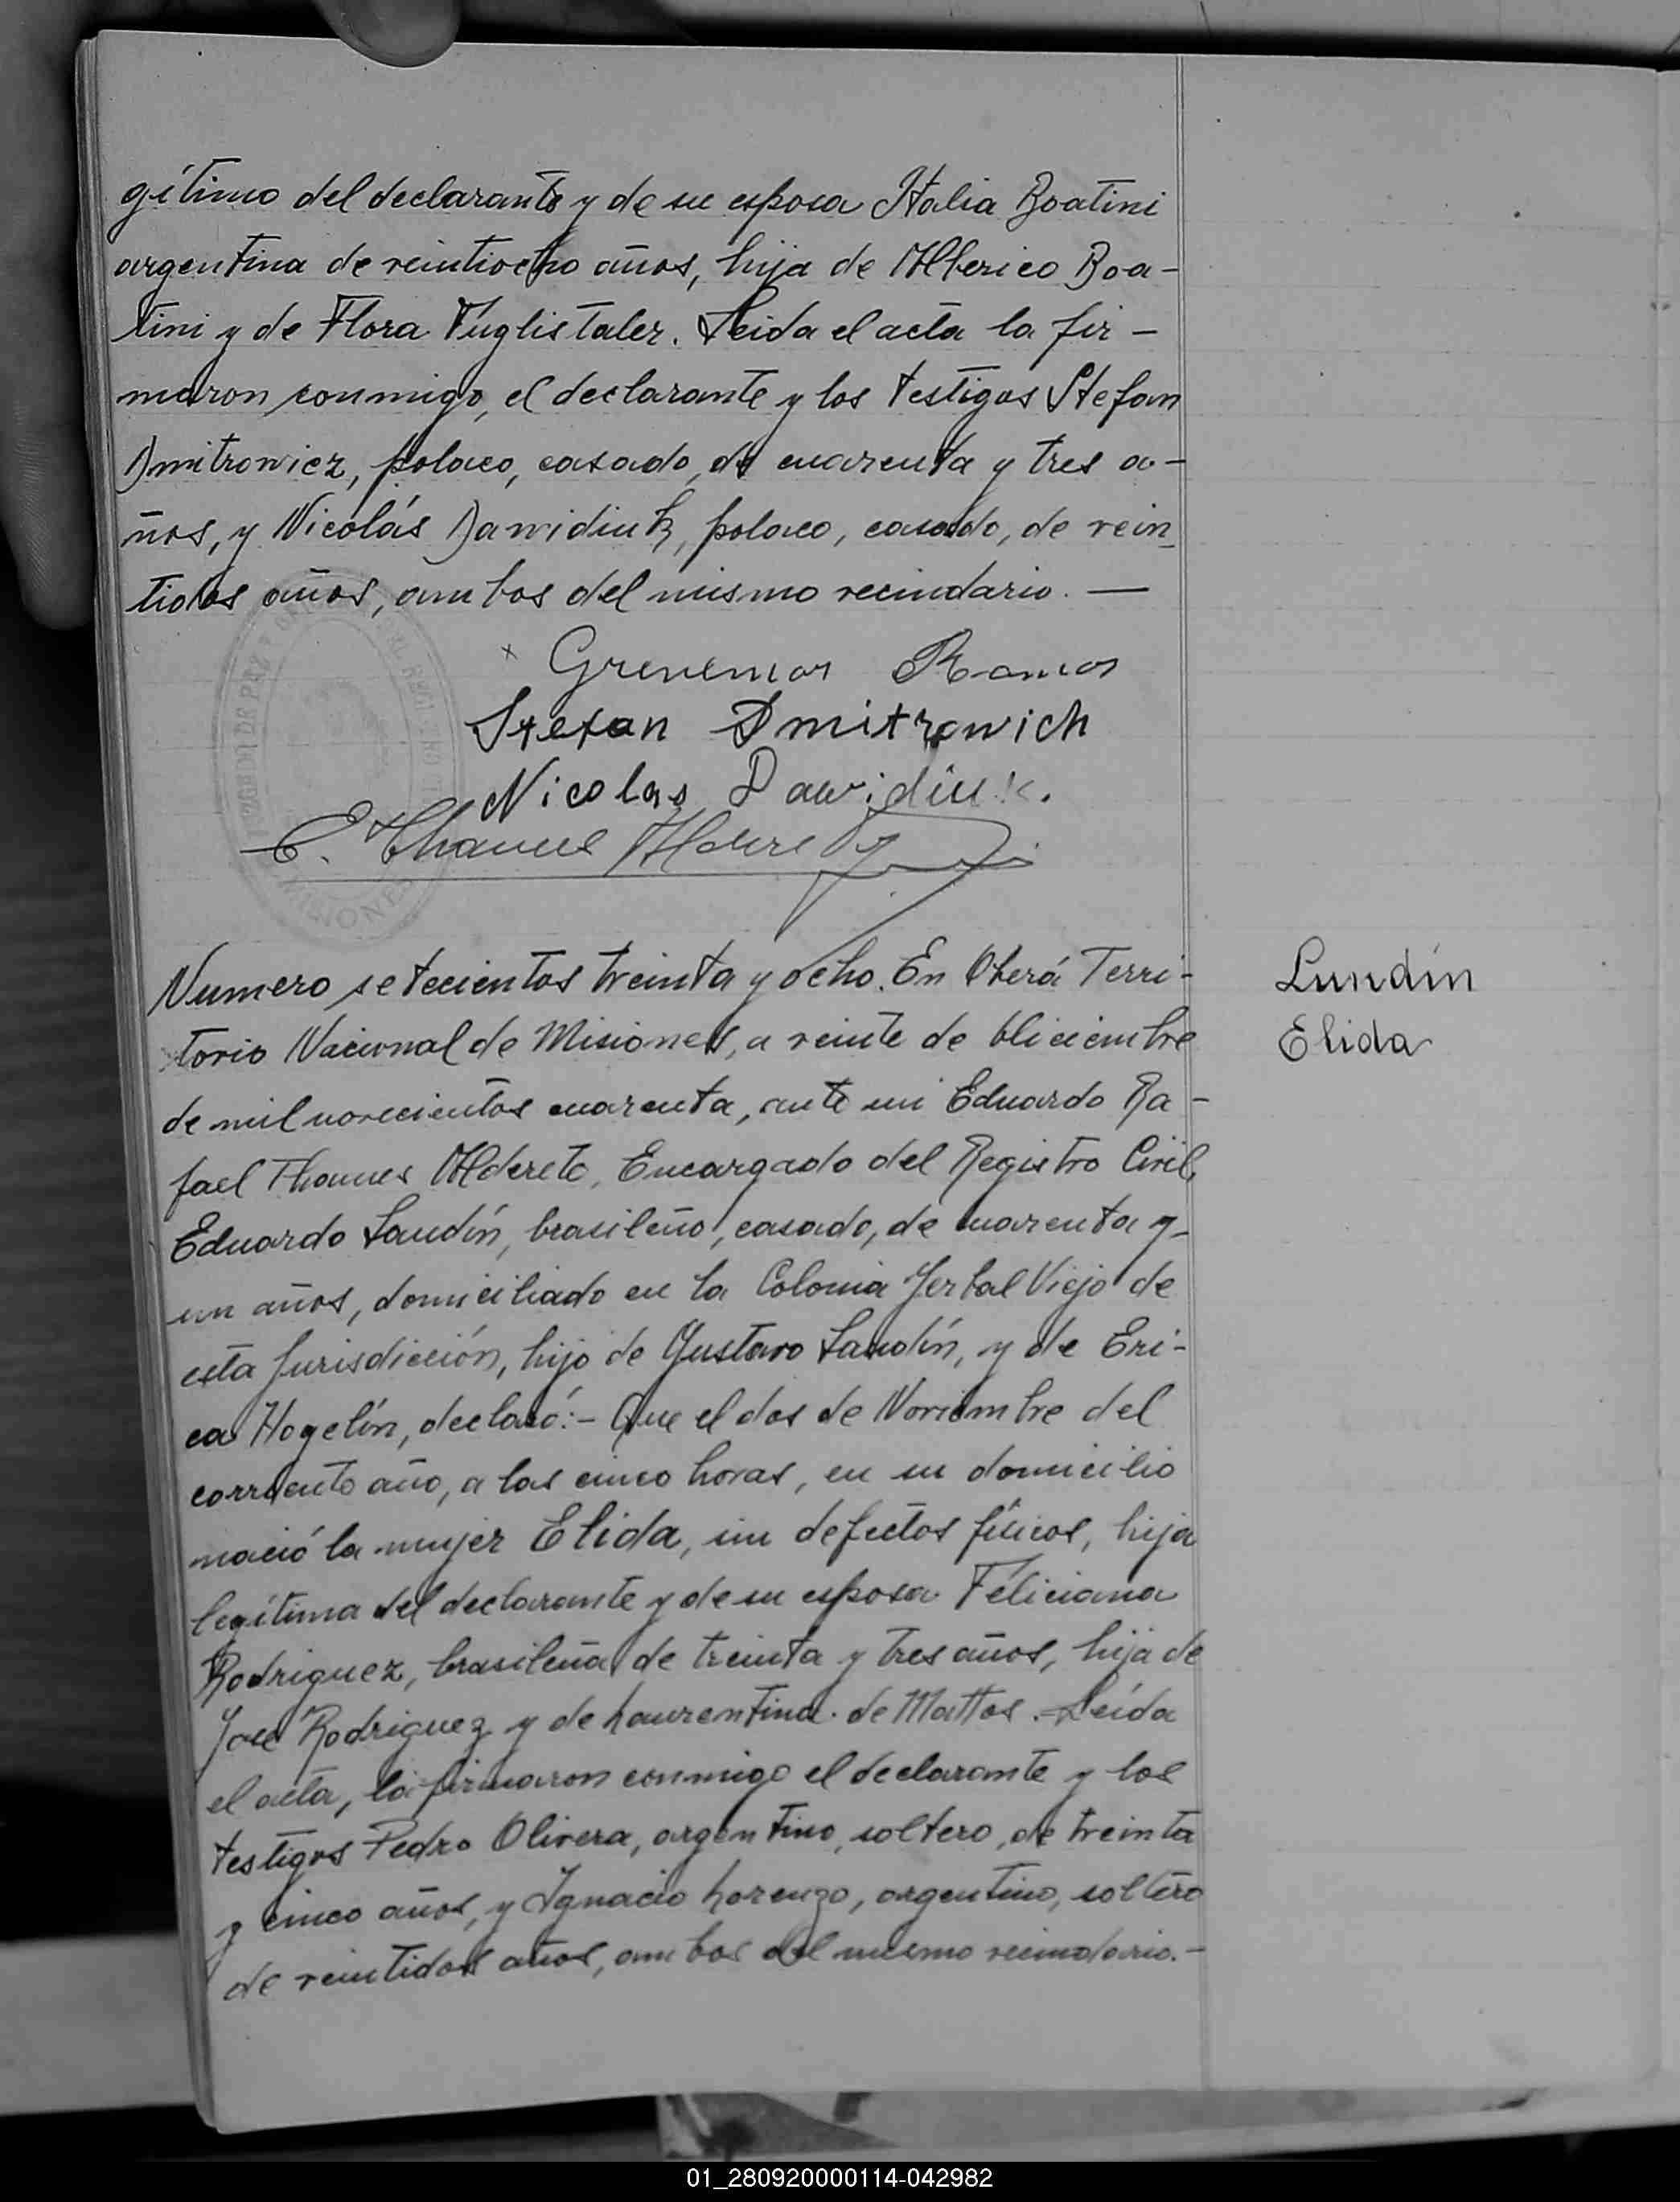 gítimo del declarante y de su esposa Italia Boatini
argentina de veintiocho años, hija de Alberico Boa-
tini y de Flora Fuglistaler. Leida el acta la fir-
maron conmigo, el declarante y los testigos Stefan
Dmitrowicz, polaco, casado, de cuarenta y tres a-
ños, y Nicolás Dawidiuk, polaco, casado, de vein_
tidos años, ambos del mismo vecindario. —
x Ramos
Stefan Dmitrowich
Nicolas Dawidiuk.
E. Thames Alderete
JUZGADO DE PAZ Y
MISIONES
Numero setecientos treinta y ocho. En Oberá Terri-
torio Nacional de Misiones, a veinte de Diciembre
de mil novecientos cuarenta, ante mi Eduardo Ra-
fael Thames Alderete, Encargado del Registro Civil,
Eduardo Landín, brasileño, casado, de cuarenta y
un años, domiciliado en la Colonia Yerbal Viejo de
esta Jurisdicción, hijo de Gustavo Landín, y de Eri-
ca Hogelín, declaró:- Que el dos de Noviembre del
corriente año, a las cinco horas, en su domicilio
nació la mujer Elida, sin defectos físicos, hija
legítima del declarante y de su esposa Feliciana
Rodriguez, brasileña de treinta y tres años, hija de
José Rodriguez y de Laurentina de Mattos. Leída
el acta, la firmaron conmigo el declarante y los
testigos Pedro Olivera, argentino, soltero, de treinta
y cinco años, y Ignacio Lorenzo, argentino, soltero
de veintidos años, ambos del mismo vecindario.-
Lundín
Elida
01_280920000114-042982